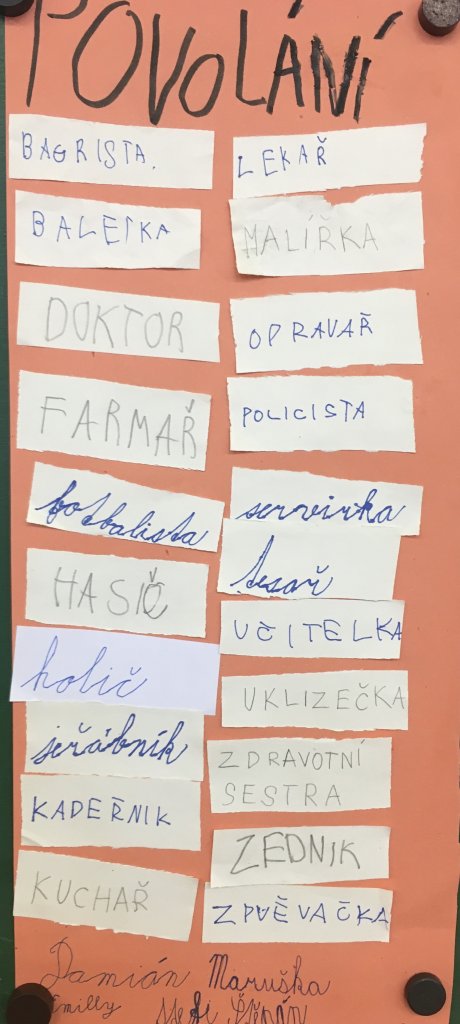 POVOLÁNÍ
BAGRISTA.
BALETKA
DOKTOR
FARMAŘ
fotbalista
HASIČ
holič
jeřábník
KADEŘNIK
KUCHAŘ
LEKAŘ
MALÍŘKA
OPRAVAŘ
POLICISTA
servirka
tesař
UČITELKA
UKLIZEČKA
ZDRAVOTNÍ
SESTRA
ZEDNIK
ZPĚVAČKA
Damián Maruška
Emilly Štěpán